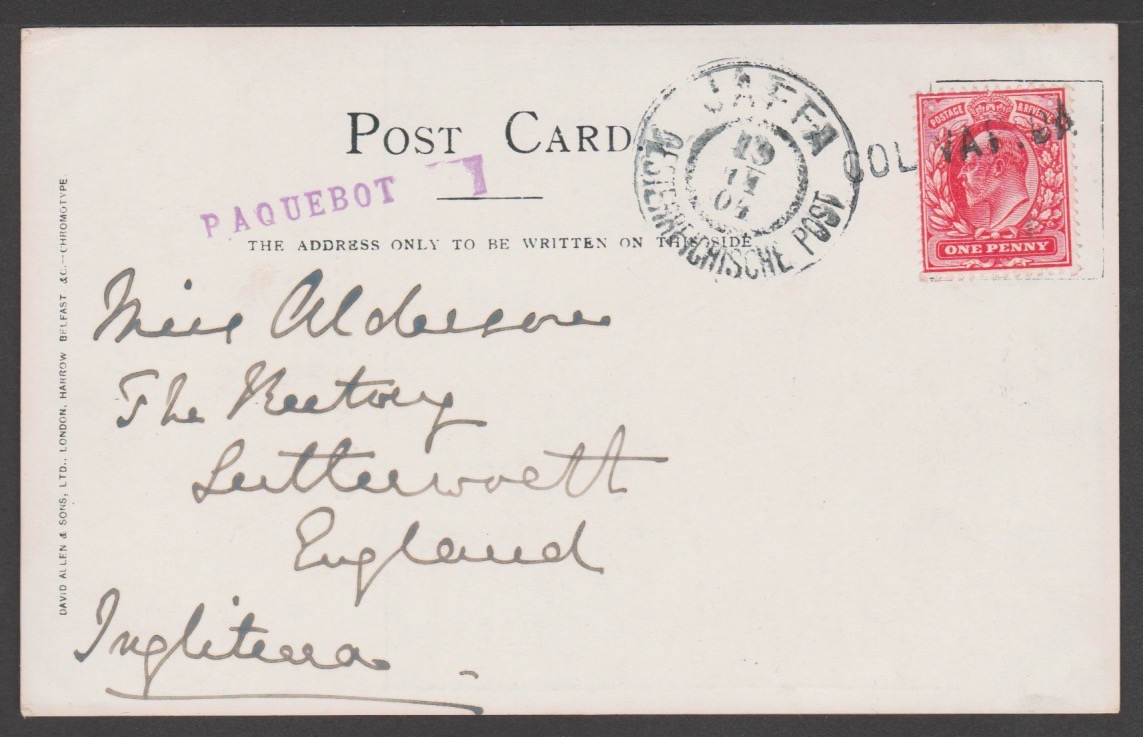 POST CARD
PAQUEBOT
THE ADDRESS ONLY TO BE WRITTEN ON THIS SIDE
JAFFA
ÖSTERREICHISCHE POST
COL VAP. DA
POSTAGE & REVENUE
ONE PENNY
Miss Alderson
The Rectory
Lutterworth
England
Ingliterra
DAVID ALLEN & SONS, LTD., LONDON, HARROW BELFAST &C.—CHROMOTYPE